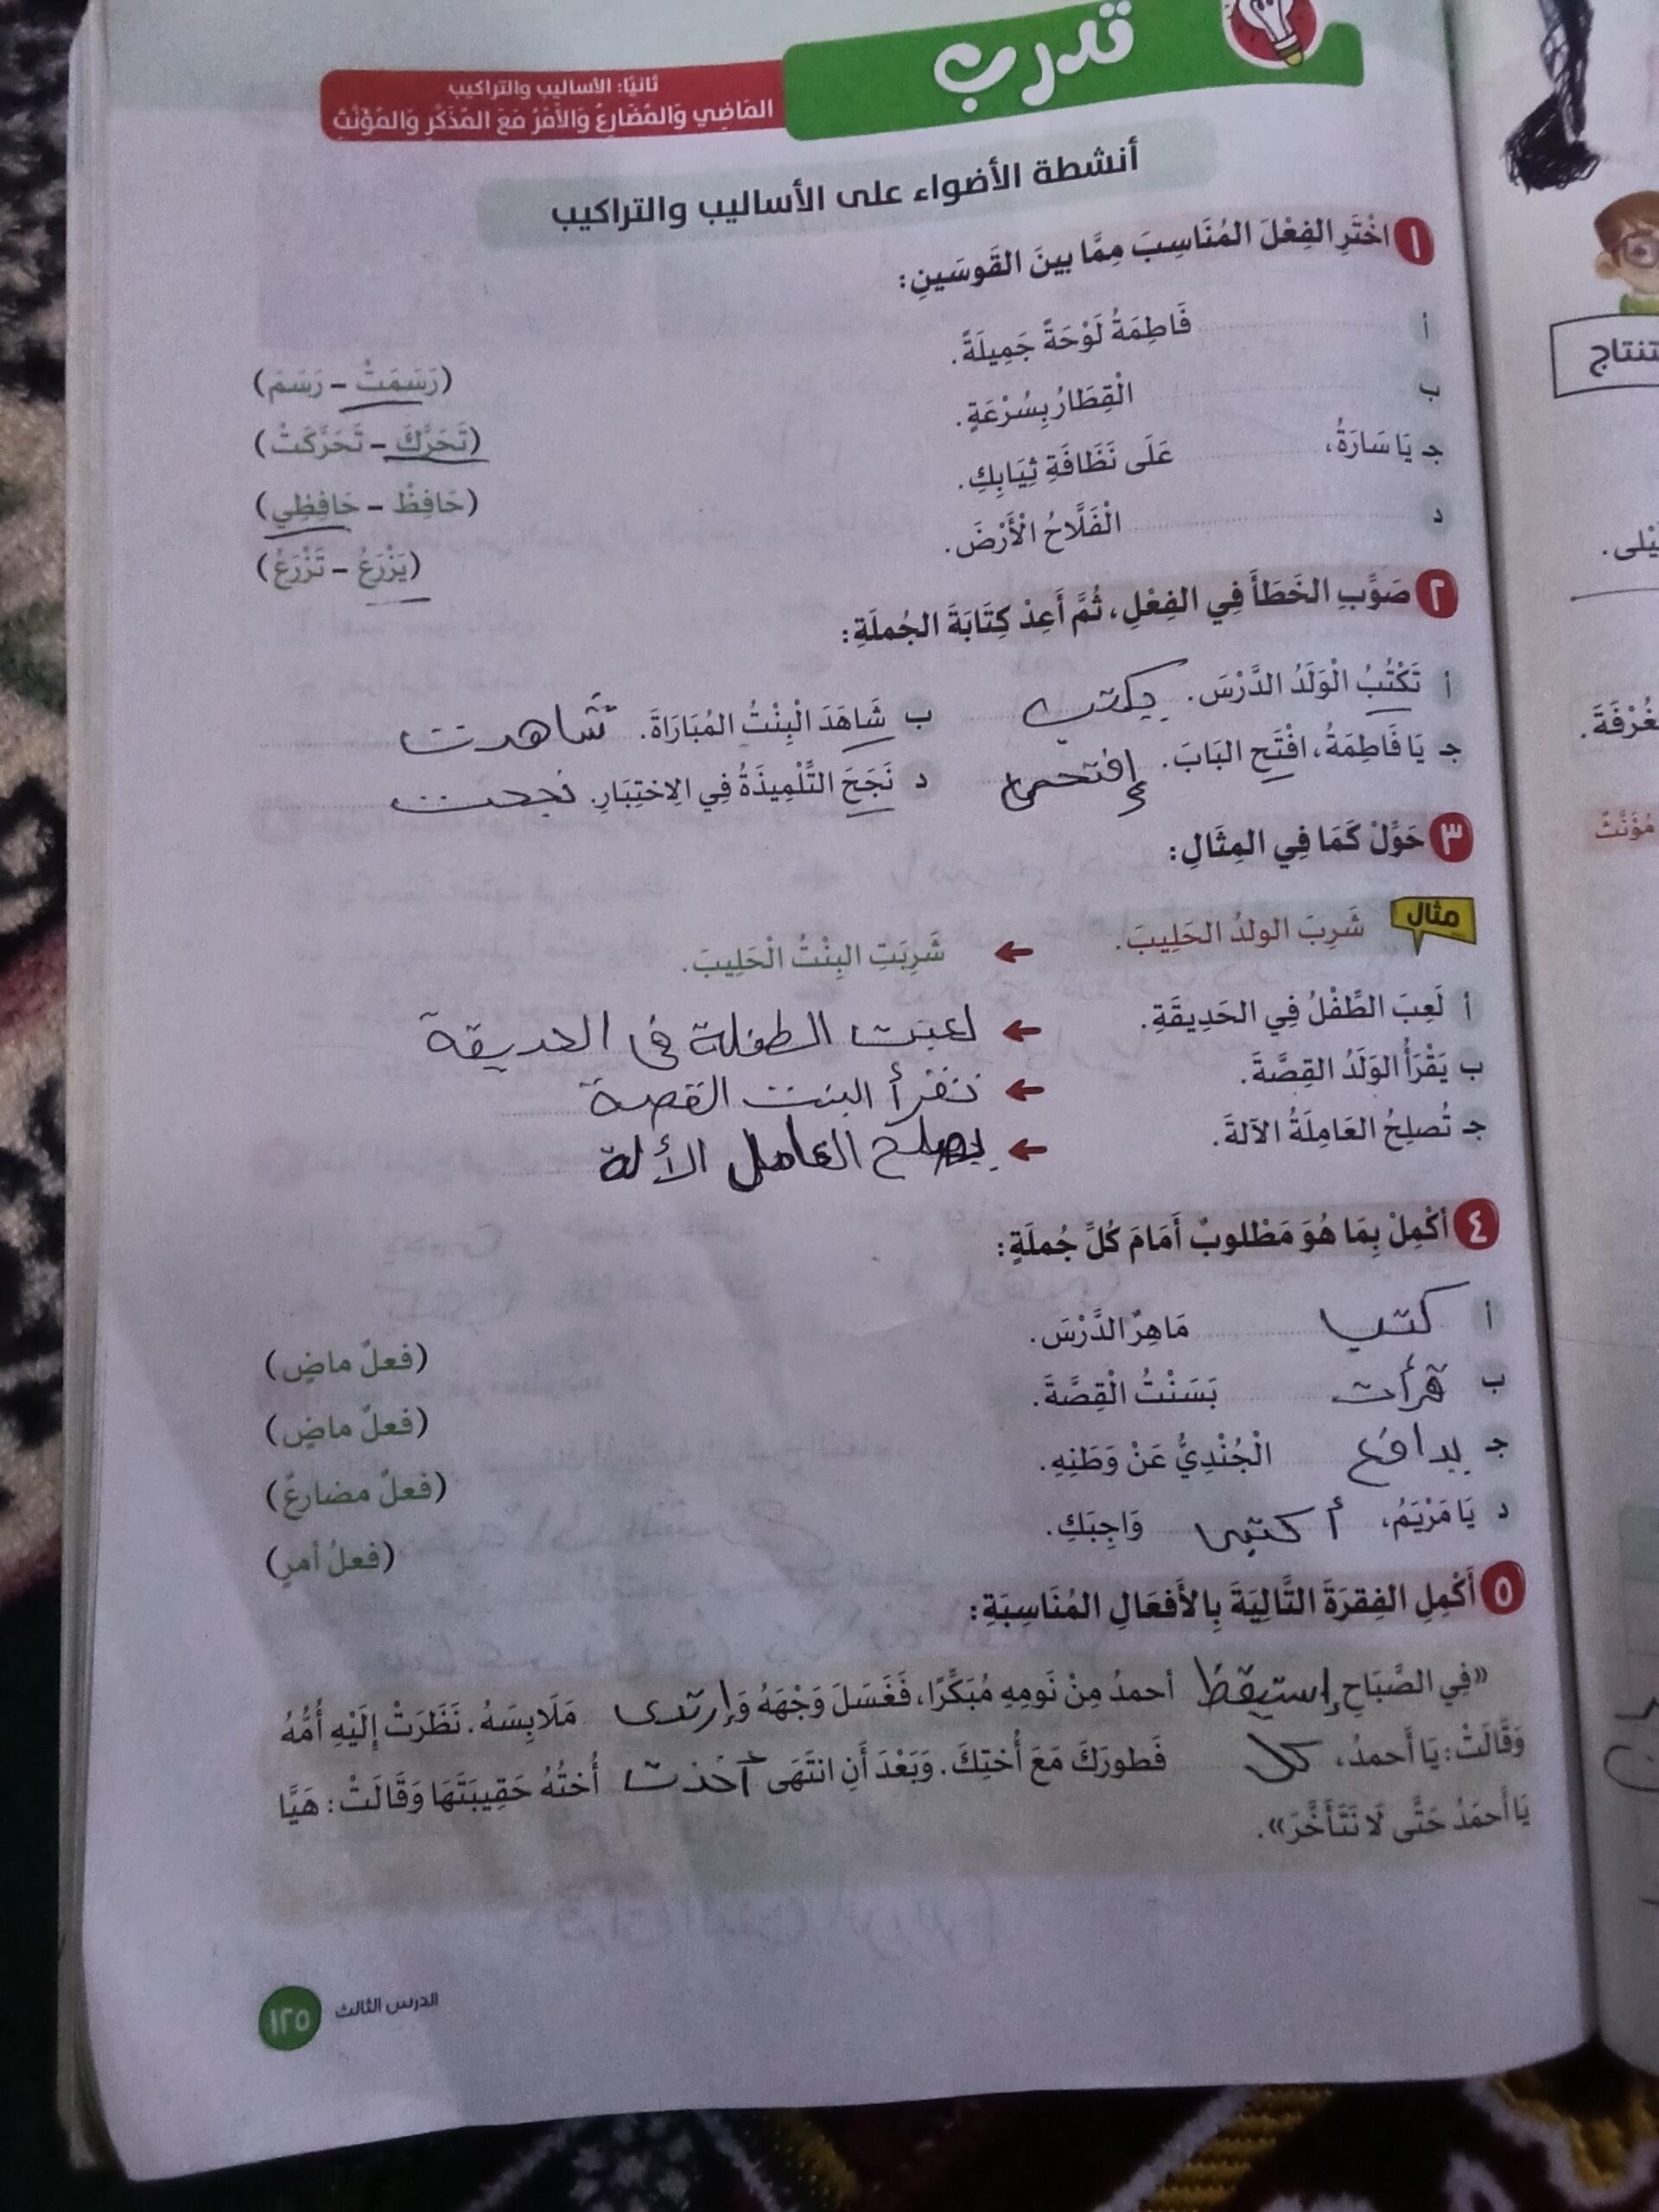 تدرب
ثانيًا: الأساليب والتراكيب
المَاضِي وَالمُضَارِعُ وَالأَمْرُ مَعَ المُذَكَّرِ وَالمُؤَنَّثِ
أنشطة الأضواء على الأساليب والتراكيب
١ اخْتَرِ الفِعْلَ المُنَاسِبَ مِمَّا بينَ القَوسَينِ:
أ فَاطِمَةُ لَوْحَةً جَمِيلَةً. (رَسَمَتْ – رَسَمَ)
ب الْقِطَارُ بِسُرْعَةٍ. (تَحَرَّكَ – تَحَرَّكَتْ)
جـ يَا سَارَةُ، عَلَى نَظَافَةِ ثِيَابِكِ. (حَافِظْ – حَافِظِي)
د الْفَلَّاحُ الْأَرْضَ. (يَزْرَعُ – تَزْرَعُ)
٢ صَوِّبِ الخَطَأَ فِي الفِعْلِ، ثُمَّ أَعِدْ كِتَابَةَ الجُملَةِ:
أ تَكْتُبُ الْوَلَدُ الدَّرْسَ. يكتب ب شَاهَدَ الْبِنْتُ المُبَارَاةَ. شاهدت
جـ يَا فَاطِمَةُ، افْتَحِ البَابَ. إفتحى د نَجَحَ التِّلْمِيذَةُ فِي الِاختِبَارِ. نجحت
٣ حَوِّلْ كَمَا فِي المِثَالِ:
مثال شَرِبَ الولدُ الحَلِيبَ. شَرِبَتِ البِنْتُ الْحَلِيبَ.
أ لَعِبَ الطِّفْلُ فِي الحَدِيقَةِ. لعبت الطفلة فى الحديقة
ب يَقْرَأُ الوَلَدُ القِصَّةَ. تقرأ البنت القصة
جـ تُصلِحُ العَامِلَةُ الآلةَ. يصلح العامل الألة
٤ أكْمِلْ بِمَا هُوَ مَطْلوبٌ أَمَامَ كُلِّ جُملَةٍ:
أ كتب مَاهِرٌ الدَّرْسَ. (فعلٌ ماضٍ)
ب قرأت بَسَنْتُ الْقِصَّةَ. (فعلٌ ماضٍ)
جـ يدافع الْجُنْدِيُّ عَنْ وَطَنِهِ. (فعلٌ مضارعٌ)
د يَا مَرْيَمُ، أكتبى وَاجِبَكِ. (فعلُ أمرٍ)
٥ أَكْمِلِ الفِقرَةَ التَّالِيَةَ بِالأَفعَالِ المُنَاسِبَةِ:
«فِي الصَّبَاحِ إستيقظ أحمدُ مِنْ نَومِهِ مُبَكِّرًا، فَغَسَلَ وَجْهَهُ وَإرتدى مَلَابِسَهُ. نَظَرَتْ إِلَيْهِ أُمُّهُ
وَقَالَتْ: يَا أَحمدُ، كل فَطورَكَ مَعَ أُختِكَ. وَبَعْدَ أَنِ انتَهَى أخذت أُختُهُ حَقِيبَتَهَا وَقَالَتْ: هَيَّا
يَا أَحمَدُ حَتَّى لَا نَتَأَخَّرَ».
الدرس الثالث
١٢٥
تنتاج
لَيْلى.
غُرْفَةَ.
مُؤَنَّثٌ